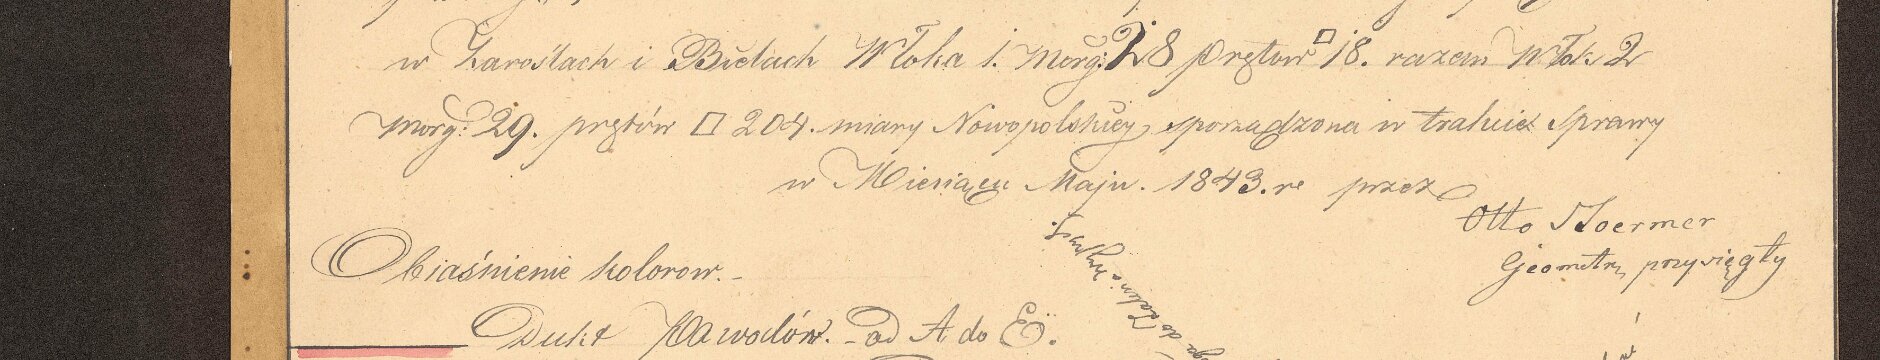 w Zaroślach i Bielach Włóka 1. Morg: 28 prętow □ 18. razem Włók 2
morg: 29. prętów □ 204. miary Nowopolskiey sporządzona w trakcie sprawy
w Miesiącu Maju. 1843. re przez
Otto Stoermer
Geometra przysięgły
Obiaśnienie kolorow. -
Dukt Powodów. - od A do E.